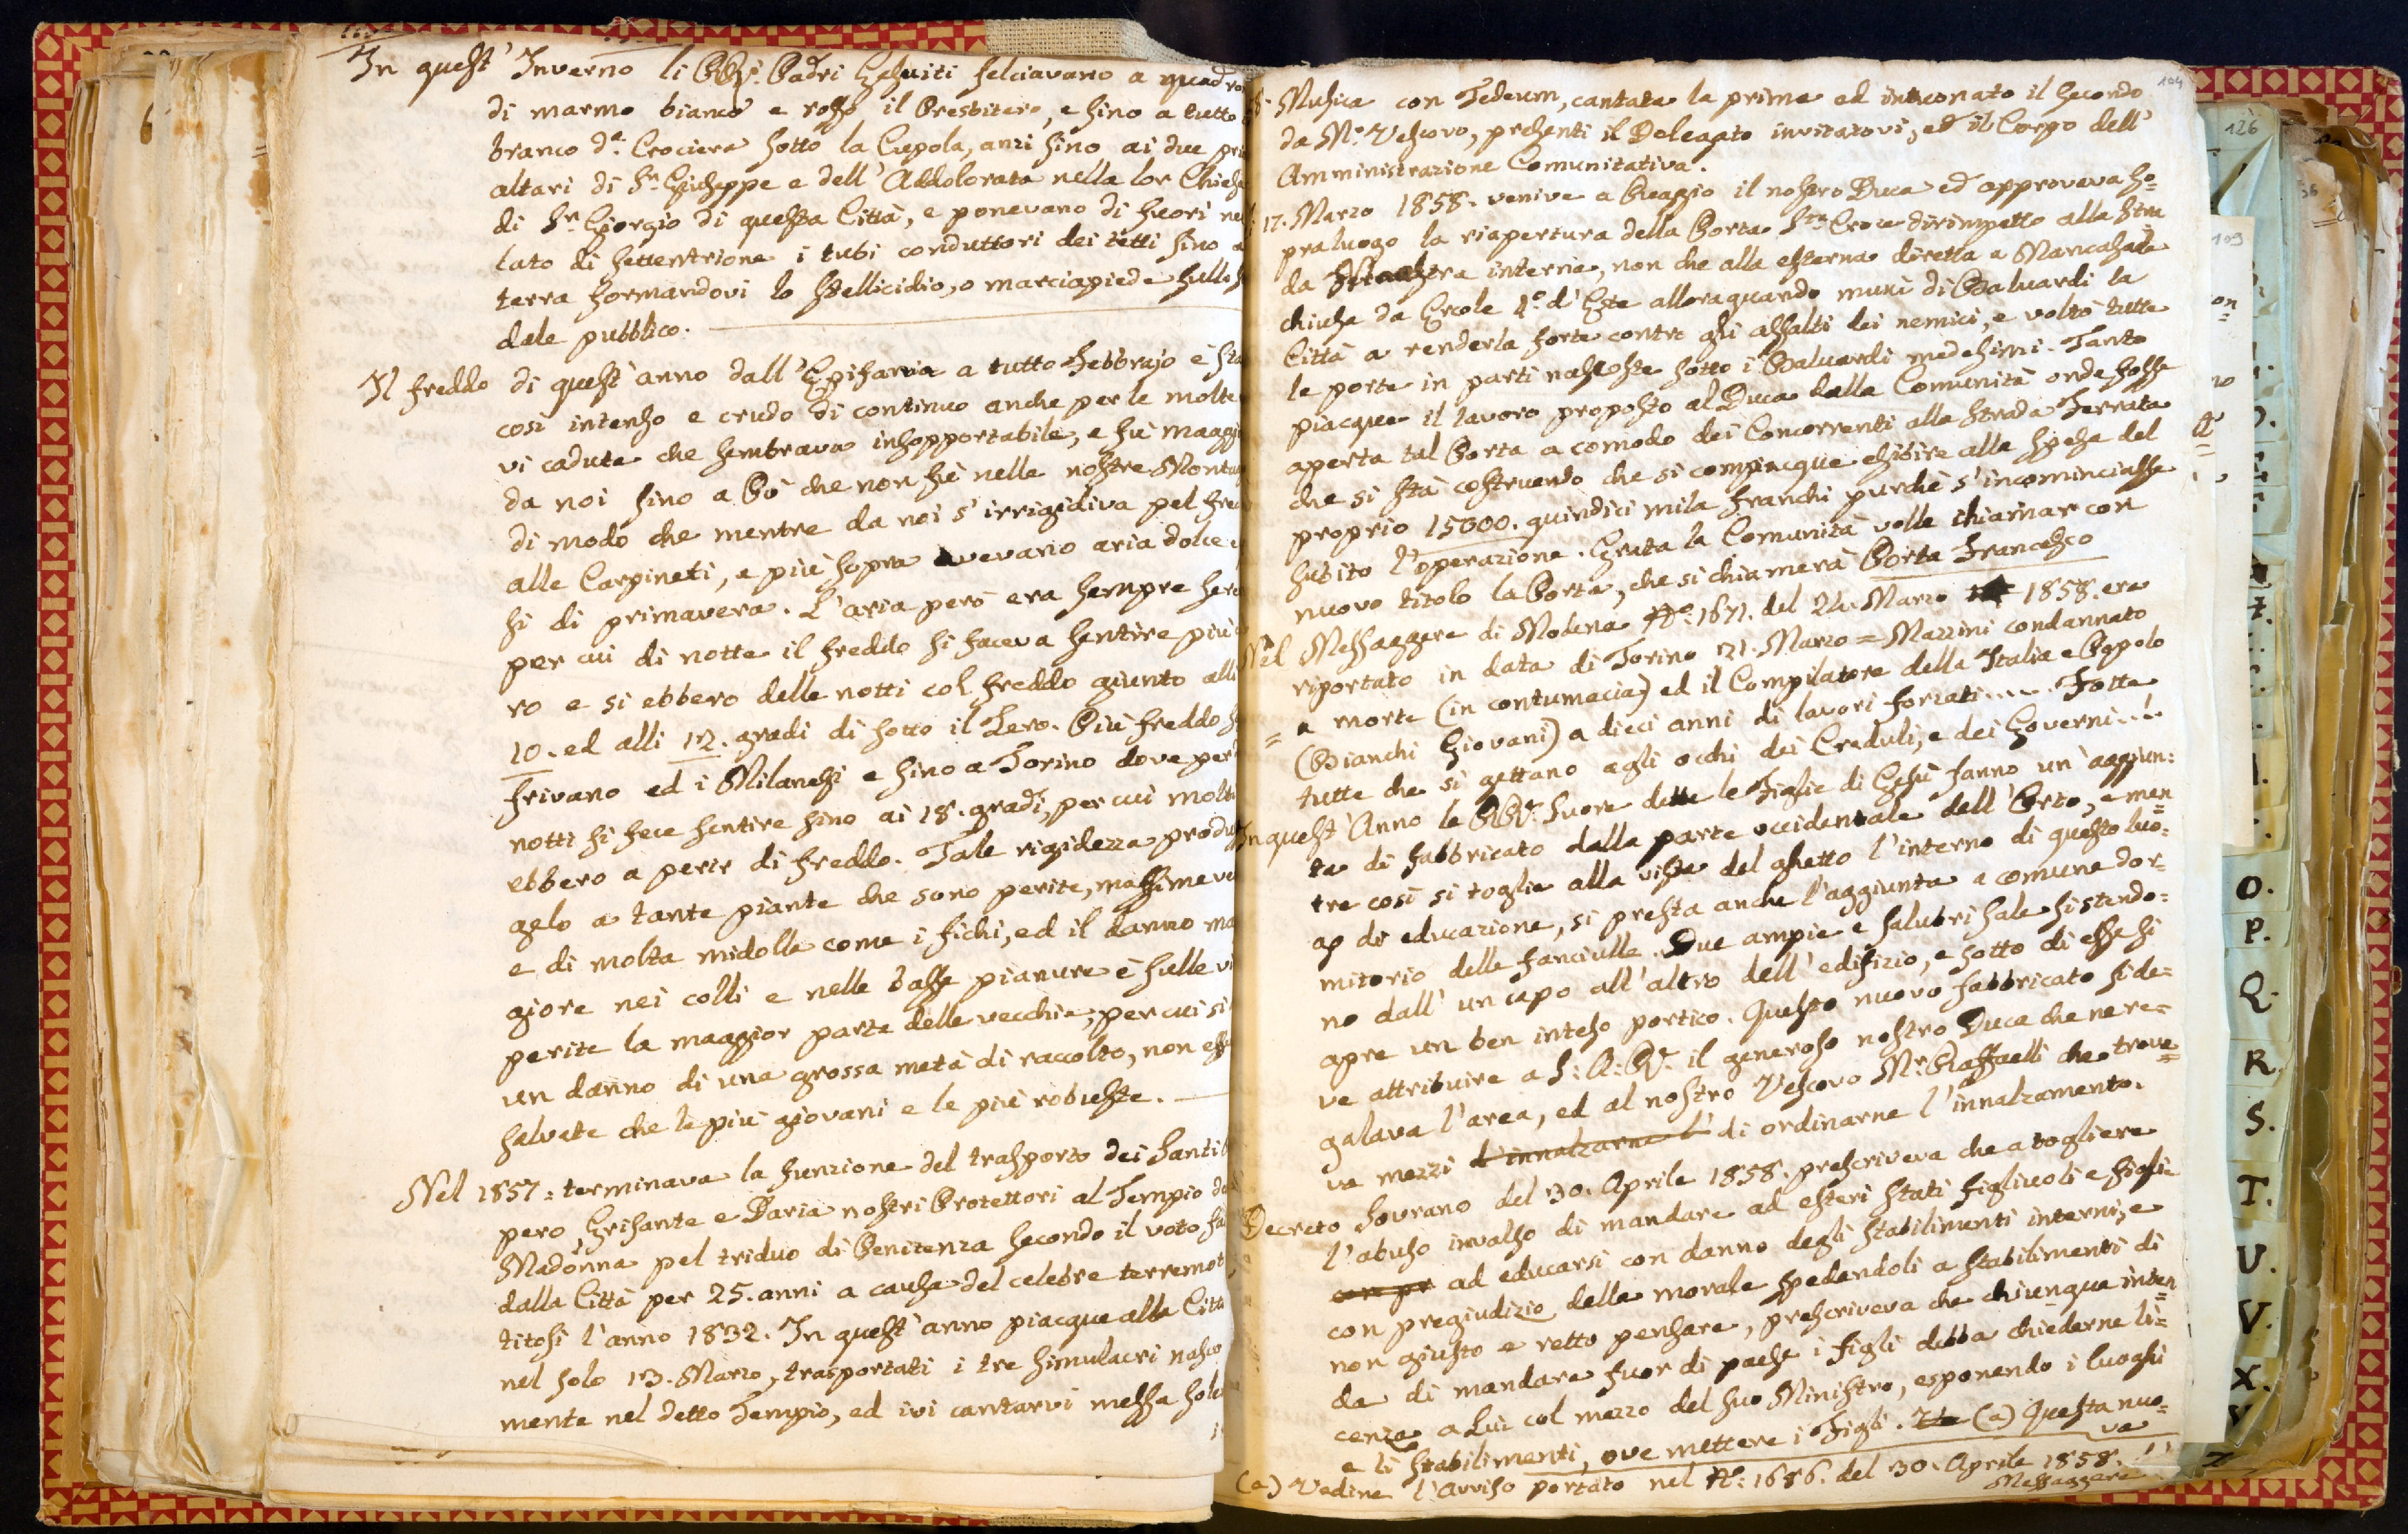 In quest' Inverno li RR: Padri Gesuiti selciavano a quadro
di marmo bianco e rosso il Presbitero, e sino a tutto
branco d.a Crociera sotto la Cupola, anzi sino ai due pri
altari di S.n Giuseppe e dell' Addolorata nella lor Chiesa
di S.n Giorgio di questa Città, e ponevano di fuori nel
lato di settentrione i tubi conduttori dei tetti sino a
terra formandovi lo stellicidio, o marciapiede sullo s
dale pubblico.
Il freddo di quest' anno dall' Epifania a tutto Febbrajo è sta
così intenso e crudo di continuo anche per le molte
vi cadute che sembrava insopportabile, e fù maggi
da noi sino a Pò che non fù nelle nostre Monta
di modo che mentre da noi s' irrigidiva pel fred
alle Carpineti, e più sopra avevano aria dolce
si di primavera. L'aria però era sempre sere
per cui di notte il freddo si faceva sentire più
ro e si ebbero delle notti col freddo giunto alli
10. ed alli 12. gradi di sotto il Zero. Più freddo so
frivano ed i Milanesi e sino a Torino dove per
notti si fece sentire sino ai 18. gradi, per cui molti
ebbero a perir di freddo. Tale rigidezza produs
gelo a tante piante che sono perite, massime ve
e di molta midolla come i fichi, ed il danno mag
giore nei colli e nelle basse pianure è sulle vi
perite la maggior parte delle vecchie, per cui si
un danno di una grossa metà di raccolto, non esse
salvate che le più giovani e le più robuste.
Nel 1857 = terminava la funzione del trasporto dei Santi
pero, Grisante e Daria nostri Protettori al Tempio d
Madonna pel triduo di Penitenza secondo il voto fa
dalla Città per 25. anni a causa del celebre terremot
titosi l'anno 1832. In quest' anno piacque alla Città
nel solo 13. Marzo, trasportati i tre simulacri nasco
mente nel detto Tempio, ed ivi cantarvi messa sole
104
Musica con Tedeum, cantata la prima ed intuonato il secondo
da M.r Vescovo, presenti il Delegato invitatovi, ed il Corpo dell'
Amministrazione Comunitativa.
17. Marzo 1858. veniva a Reggio il nostro Duca ed approvava so=
praluogo la riapertura della Porta S.ta Croce dirimpetto alla stra
da interna, non che alla esterna diretta a Mancasale
chiusa da Ercole 4.o d' Este alloraquando munì di Baluardi la
Città a renderla forte contro gli assalti dei nemici, e voltò tutte
le porte in parti nascoste sotto i Baluardi medesimi. Tanto
piacque il lavoro proposto al Duca dalla Comunità onde fosse
aperta tal Porta a comodo dei Concorrenti alla strada Ferrata
che si stà costruendo che si compiacque esibire alla spesa del
proprio 15000. quindici mila franchi purchè s'incominciasse
subito l'operazione. Grata la Comunità volle chiamar con
nuovo titolo la Porta, che si chiamerà Porta Francesco
Nel Messaggere di Modena N.o 1671. del 24. Marzo 1858. era
riportato in data di Torino 21. Marzo = Mazzini condannato
= a morte (in contumacia) ed il Compilatore della Italia e Popolo
(Bianchi Giovani) a dieci anni di lavori forzati .... Fotte
tutte che si gettano agli occhi dei Creduli, e dei Governi...!
In quest' Anno le RR: Suore dette le Figlie di Gesù fanno un' aggiun:
ta di fabbricato dalla parte occidentale dell' Orto, e men=
tre così si toglie alla vista del ghetto l'interno di questo luo=
go di educazione, si presta anche l'aggiunta a comune dor=
mitorio delle fanciulle. Due ampie e salubri sale si stendo=
no dall' un capo all' altro dell' edifizio, e sotto di esse si
apre un ben inteso portico. Questo nuovo fabbricato si de=
ve attribuire a S: A: R: il generoso nostro Duca che ne re=
galava l'area, ed al nostro Vescovo M.r Raffaelli che trova=
va mezzi d'innalzarne l' di ordinarne l'innalzamento.
Decreto Sovrano del 30. Aprile 1858. prescriveva che a togliere
l'abuso invalso di mandare ad esteri stati figliuoli e figlie
con pr ad educarsi con danno degli stabilimenti interni, e
con pregiudizio della morale spedendoli a stabilimenti di
non giusto e retto pensare, prescriveva che chiunque inten=
da di mandare fuor di paese i figli debba chiederne li=
cenza a Lui col mezzo del suo Ministro, esponendo i luoghi
e li stabilimenti, ove mettere i Figli. (a) Questa nuo=
va
(a) Vedine l'avviso portato nel N.o: 1686. del 30. Aprile 1858.
Messaggere
126
109
O.
P.
Q.
R.
S.
T.
U.
V.
X.